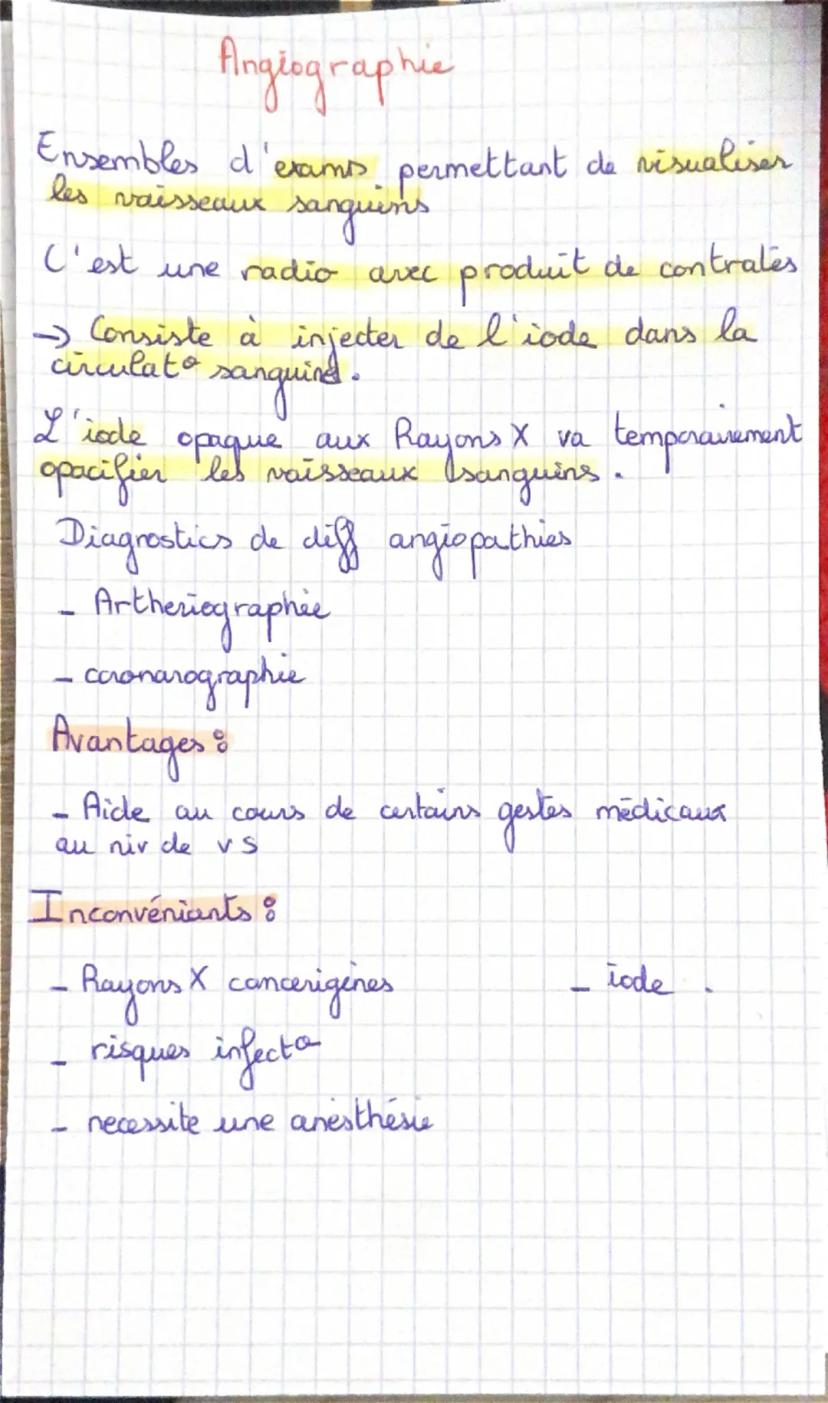 Angiographie
Ensembles d'exams permettant de visualiser
les vaisseaux sanguins
C'est une radio avec produit de contratès
→ Consiste à injecter de l'iode dans la
circulat° sanguine.
L'iode opaque aux Rayons X va temporairement
opacifier les vaisseaux sanguins.
Diagnostics de diff angiopathies
- Artheriographie
- coronarographie
Avantages :
- Aide au cours de certains gestes médicaux
au niv de vs
Inconvéniants :
- Rayons X cancerigènes - iode.
- risques infect°
- necessite une anesthésie